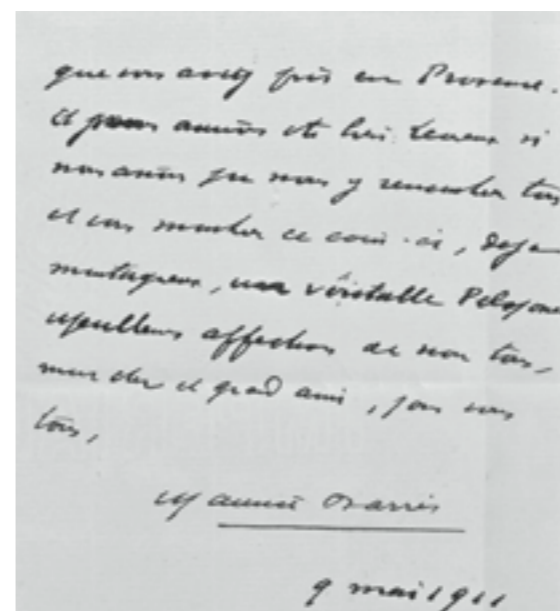 que vous avez pris en Provence.
Et nous aurions été bien heureux si
nous avions pu vous y rencontrer tous
et vous montrer ce coin-ci, déjà
montagneux, une véritable
Meilleures affections de nous tous,
mon cher et grand ami, pour vous
tous,
Maurice Barrès
9 mai 1911